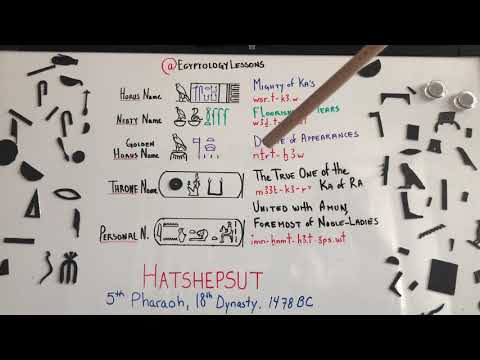 @EgyptologyLessons
Horus Name Mighty of Ka's
wsr.t-k3.w
Nebty Name
Golden Horus Name of Appearances
Throne Name The True One of the Ka of Ra
m33t-k3-rˁ
Personal N. United with Amun, Foremost of Noble-Ladies
imn-ẖnmt-ḥ3.t-šps.wt
Hatshepsut
5th Pharaoh, 18th Dynasty. 1478 BC